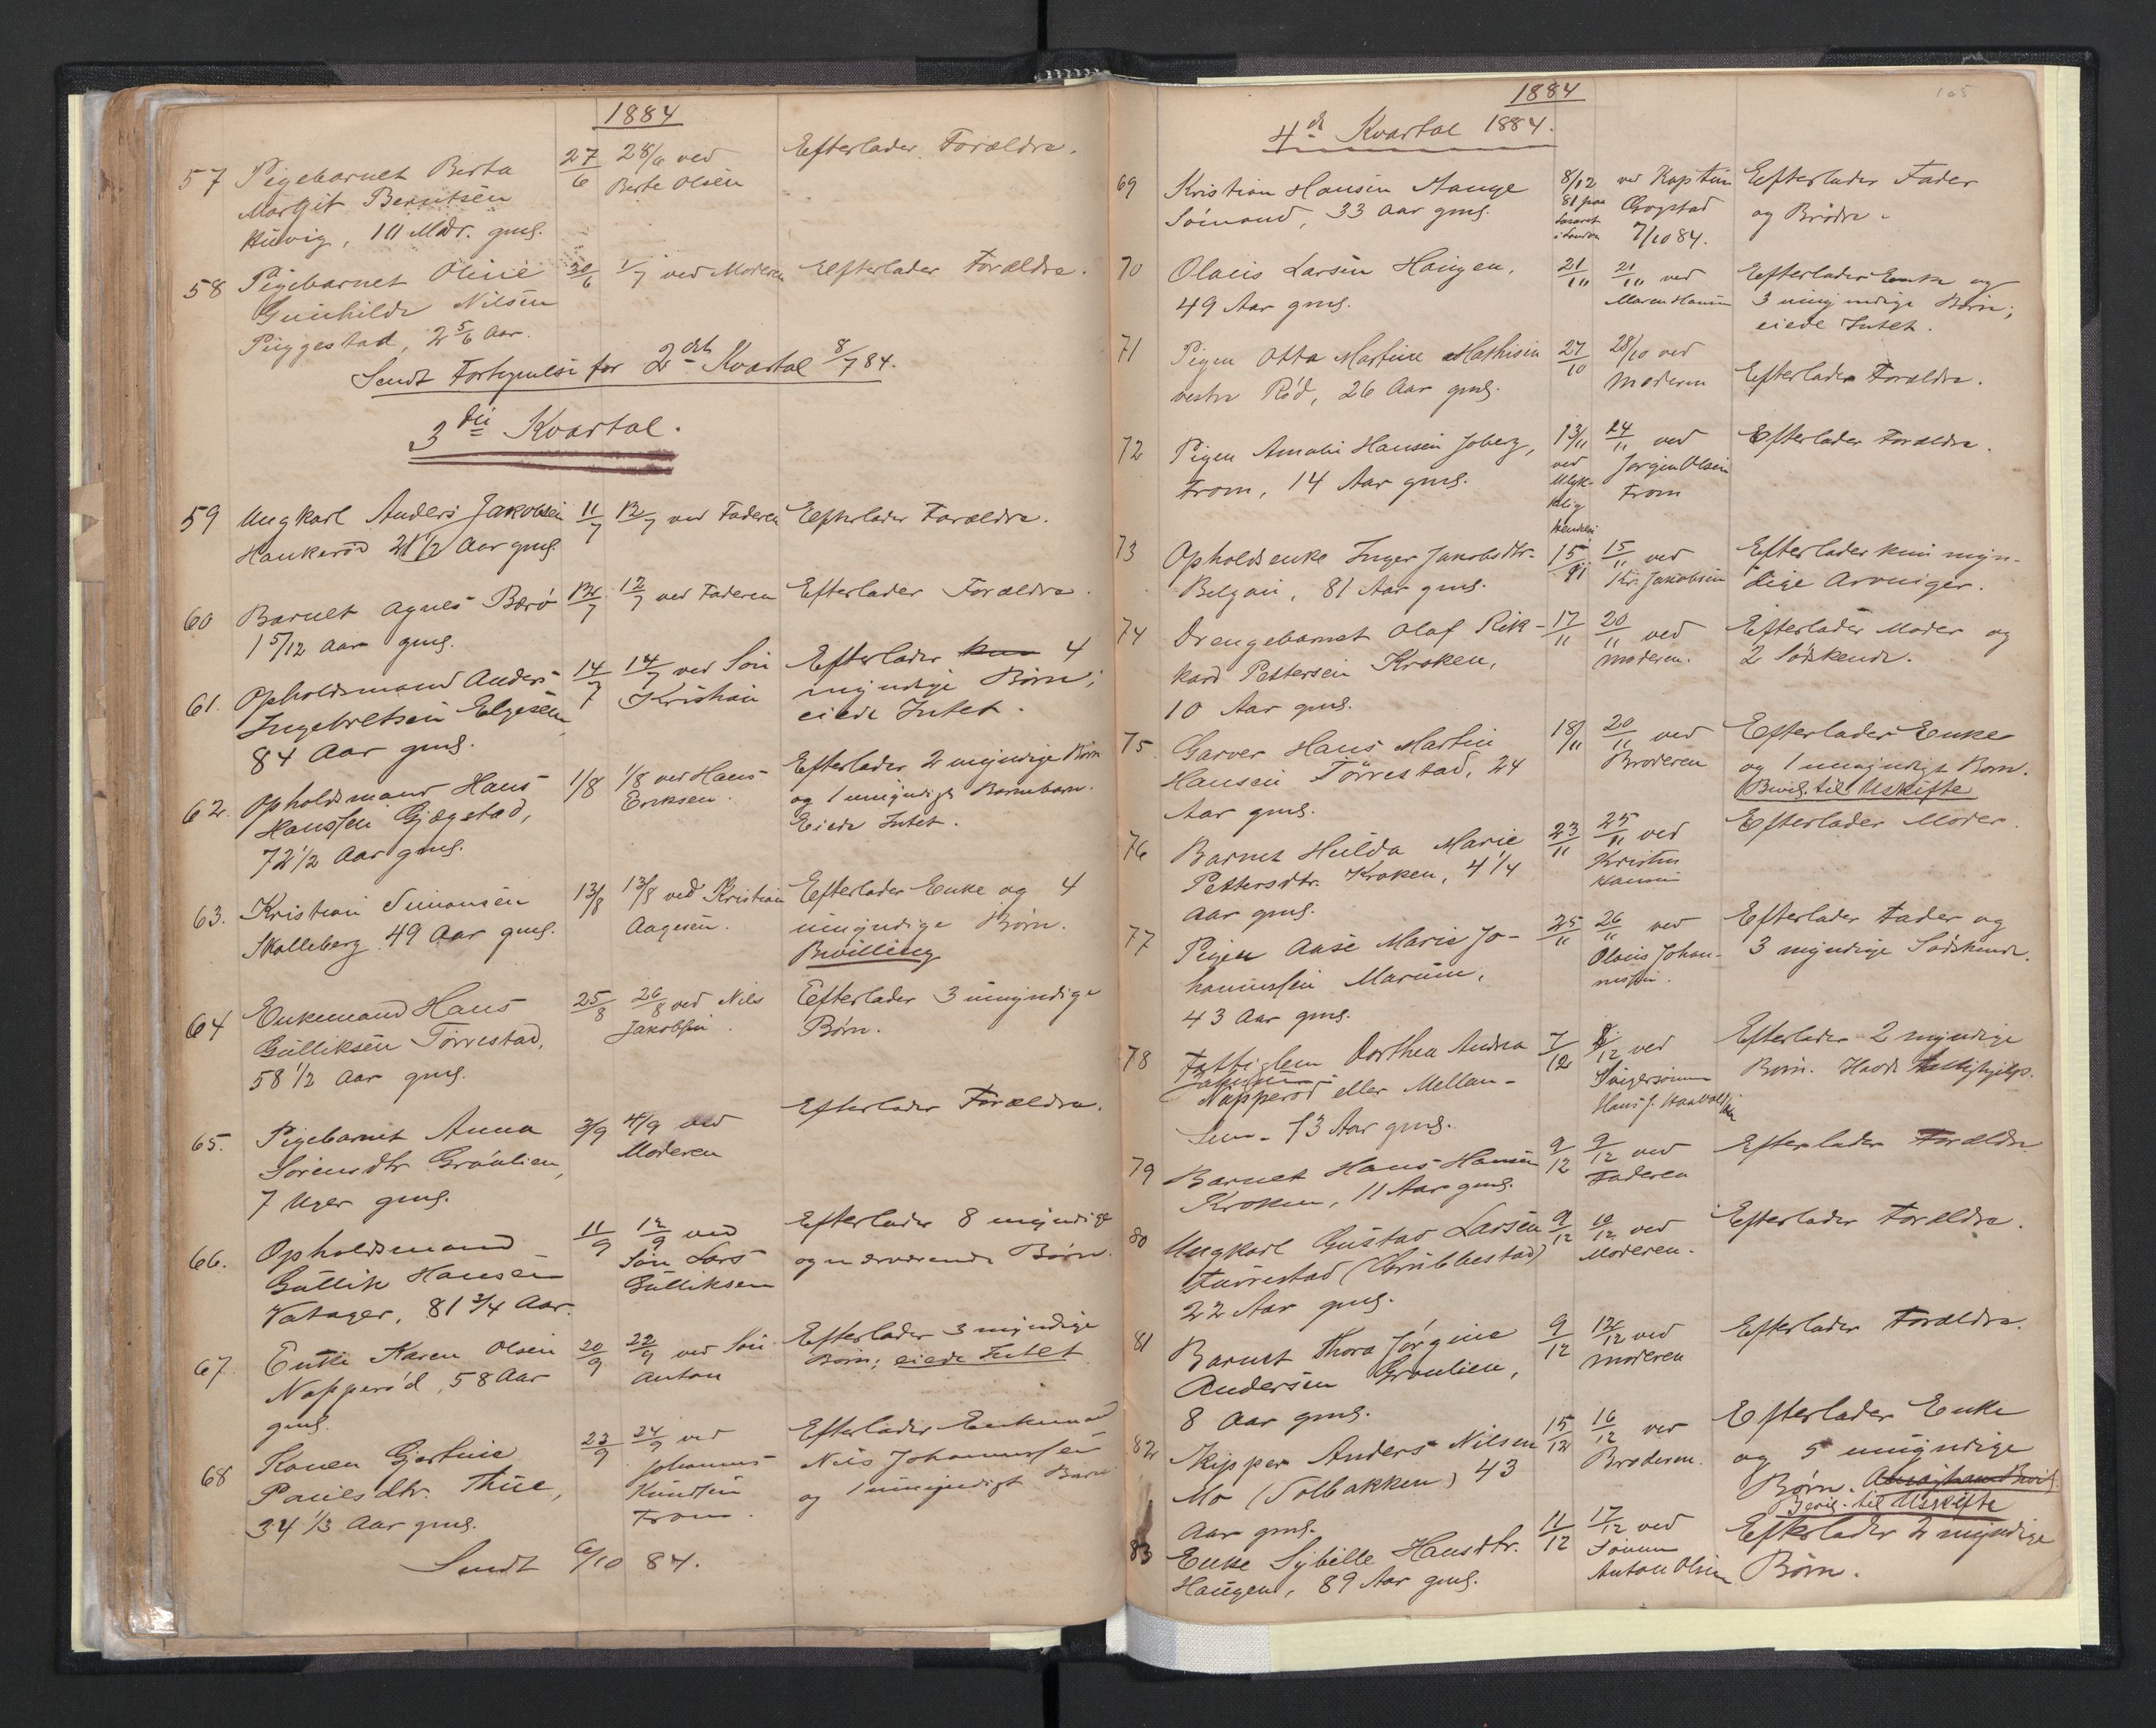 1884
57 Pigebarnet Berta 27/6 28/6 ved Efterlader Forældre.
Margit Berntsen Berte Olsen
Huvig, 10 Mdr. gml.
58 Pigebarnet Oline 30/6 1/7 ved Moderen Efterlader Forældre.
Gunhilde Nilsen
Puggestad, 2 5/6 Aar.
Sendt Fortegnelse for 2det Kvartal 8/7 84.
3die Kvartal.
59 Ungkarl Anders Jakobsen 11/7 12/7 ved Faderen Efterlader Forældre.
Haukerød 21 1/2 Aar gml.
60 Barnet Agnes Berø 12/7 12/7 ved Faderen Efterlader Forældre.
1 5/12 Aar gml.
61. Opholdsmand Anders 14/7 14/7 ved Søn Efterlader kun 4
Ingebretsen Elgesem, Kristian myndige Børn;
84 Aar gml. eiede Intet.
62. Opholdsmand Hans 1/8 1/8 ved Hans Efterlader 2 myndige Børn
Hanssen Gjøgstad, Eriksen. og 1 umyndigt Barnebarn.
72 1/2 Aar gml. Eiede Intet.
63. Kristian Simonsen 13/8 13/8 ved Kristian Efterlader Enke og 4
Skolleberg 49 Aar gml. Aagesen. umyndige Børn.
Bevilling
64 Enkemand Hans 25/8 26/8 ved Nils Efterlader 3 umyndige
Gulliksen Tørrestad, Jakobsen. Børn.
58 1/2 Aar gml.
65. Pigebarnet Anna 3/9 4/9 ved Efterlader Forældre.
Sørensdtr. Graulien, Moderen
7 Uger gml.
66. Opholdsmand 11/9 12/9 ved Efterlader 8 myndige
Gullik Hansen Søn Lars og nærværende Børn.
Vatager, 81 3/4 Aar. Gulliksen
67. Enke Karen Olsen 20/9 22/9 ved Søn Efterlader 3 myndige
Napperød, 58 Aar Anton Børn; eiede Intet
gml.
68 Konen Gjertine 23/9 24/9 ved Efterlader Enkemand
Paulsdtr. Thue, Johannes Nils Johannessen
34 1/3 Aar gml. Knudsen og 1 umyndigt Barn
From.
Sendt 6/10 84.
1884
105
4de Kvartal 1884.
69 Kristian Hansen Hauge 8/12 ved Kaptein Efterlader Fader
Sømand, 33 Aar gml. 81 paa Gogstad og Brødre.
Lasaret
i London 7/10 84.
70 Olaus Larsen Haugen, 21/10 21/10 ved Efterlader Enke og
49 Aar gml. Maren Hansen 3 umyndige Børn;
eiede Intet.
71 Pigen Otta Martine Mathisen 27/10 28/10 ved
vestre Rød, 26 Aar gml. Moderen Efterlader Forældre.
72 Pigen Amalie Hansen Joberg, 13/11 24/11 ved Efterlader Forældre.
From, 14 Aar gml. ved Jørgen Olsen
Ulyk- From
kelig
Hendelse
73 Opholdsenke Inger Jakobsdtr. 15/11 15/11 ved Efterlader kun myn-
Belgau, 81 Aar gml. Kr. Jakobsen dige Arvinger.
74 Drengebarnet Olaf Rik- 17/11 20/11 ved Efterlader Moder og
kard Pettersen Kroken, Moderen. 2 Sødskende.
10 Aar gml.
75 Garver Hans Martin 18/11 20/11 ved Efterlader Enke
Hansen Tørrestad, 24 Broderen og 1 umyndigt Barn.
Aar gml. Bevil. til Uskifte
76 Barnet Hulda Marie 23/11 25/11 ved Efterlader Moder.
Pettersdtr. Kroken, 4 1/4 Kristen
Aar gml. Hansen
77 Pigen Aase Marie Jo- 25/11 26/11 ved Efterlader Fader og
hannessen Marum, Olaus Johan- 3 myndige Sødskende.
43 Aar gml. nessen.
78 Fattiglem Dorthea Andrea 7/12 8/12 ved Efterlader 2 myndige
Napperød eller Mellem- Svigersønnen Børn. Havde Fattighjelp.
Sem. 73 Aar gml. Hans J.
79 Barnet Hans Hansen 9/12 9/12 ved Efterlader Forældre.
Kroken, 11 Aar gml. Faderen
80 Ungkarl Gustav Larsen 9/12 10/12 ved Efterlader Forældre.
Tørrestad (Grubbestad) Moderen.
22 Aar gml.
81 Barnet Thora Jørgine 9/12 12/12 ved Efterlader Forældre.
Andersen Graulien, Moderen
8 Aar gml.
82 Skipper Anders Nilsen 15/12 16/12 ved Efterlader Enke
Mo (Solbakken) 43 Broderen. og 5 umyndige
Aar gml. Børn.
Bevil. til Uskifte
83 Enke Sybille Hansdtr. 11/12 17/12 ved Efterlader 2 myndige
Haugen, 89 Aar gml. Sønnen Børn.
Anton Olsen